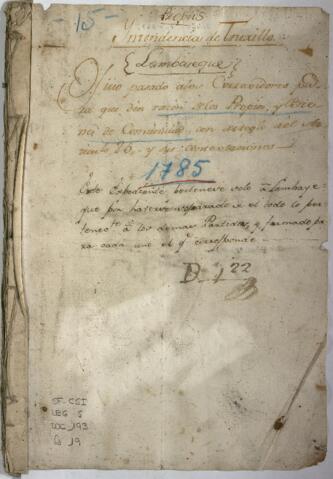 -15-
Propios
Yntendencia de Truxillo.
Lambayeque
Oficio pasado a los Corregidores, pa
ra que den razon de los Propios, y Caxa
de Comunidad, con arreglo al Ar
ticulo 26, y sus contextaciones
1785
Este Expediente contiene solo a Lambaye
que por haverse separado el todo lo per
tenecte. a los demas Partidos, y formado pa
ra cada uno el qe. corresponde
D. 122
SF. CSI
LEG 5
DOC 193
fs 19